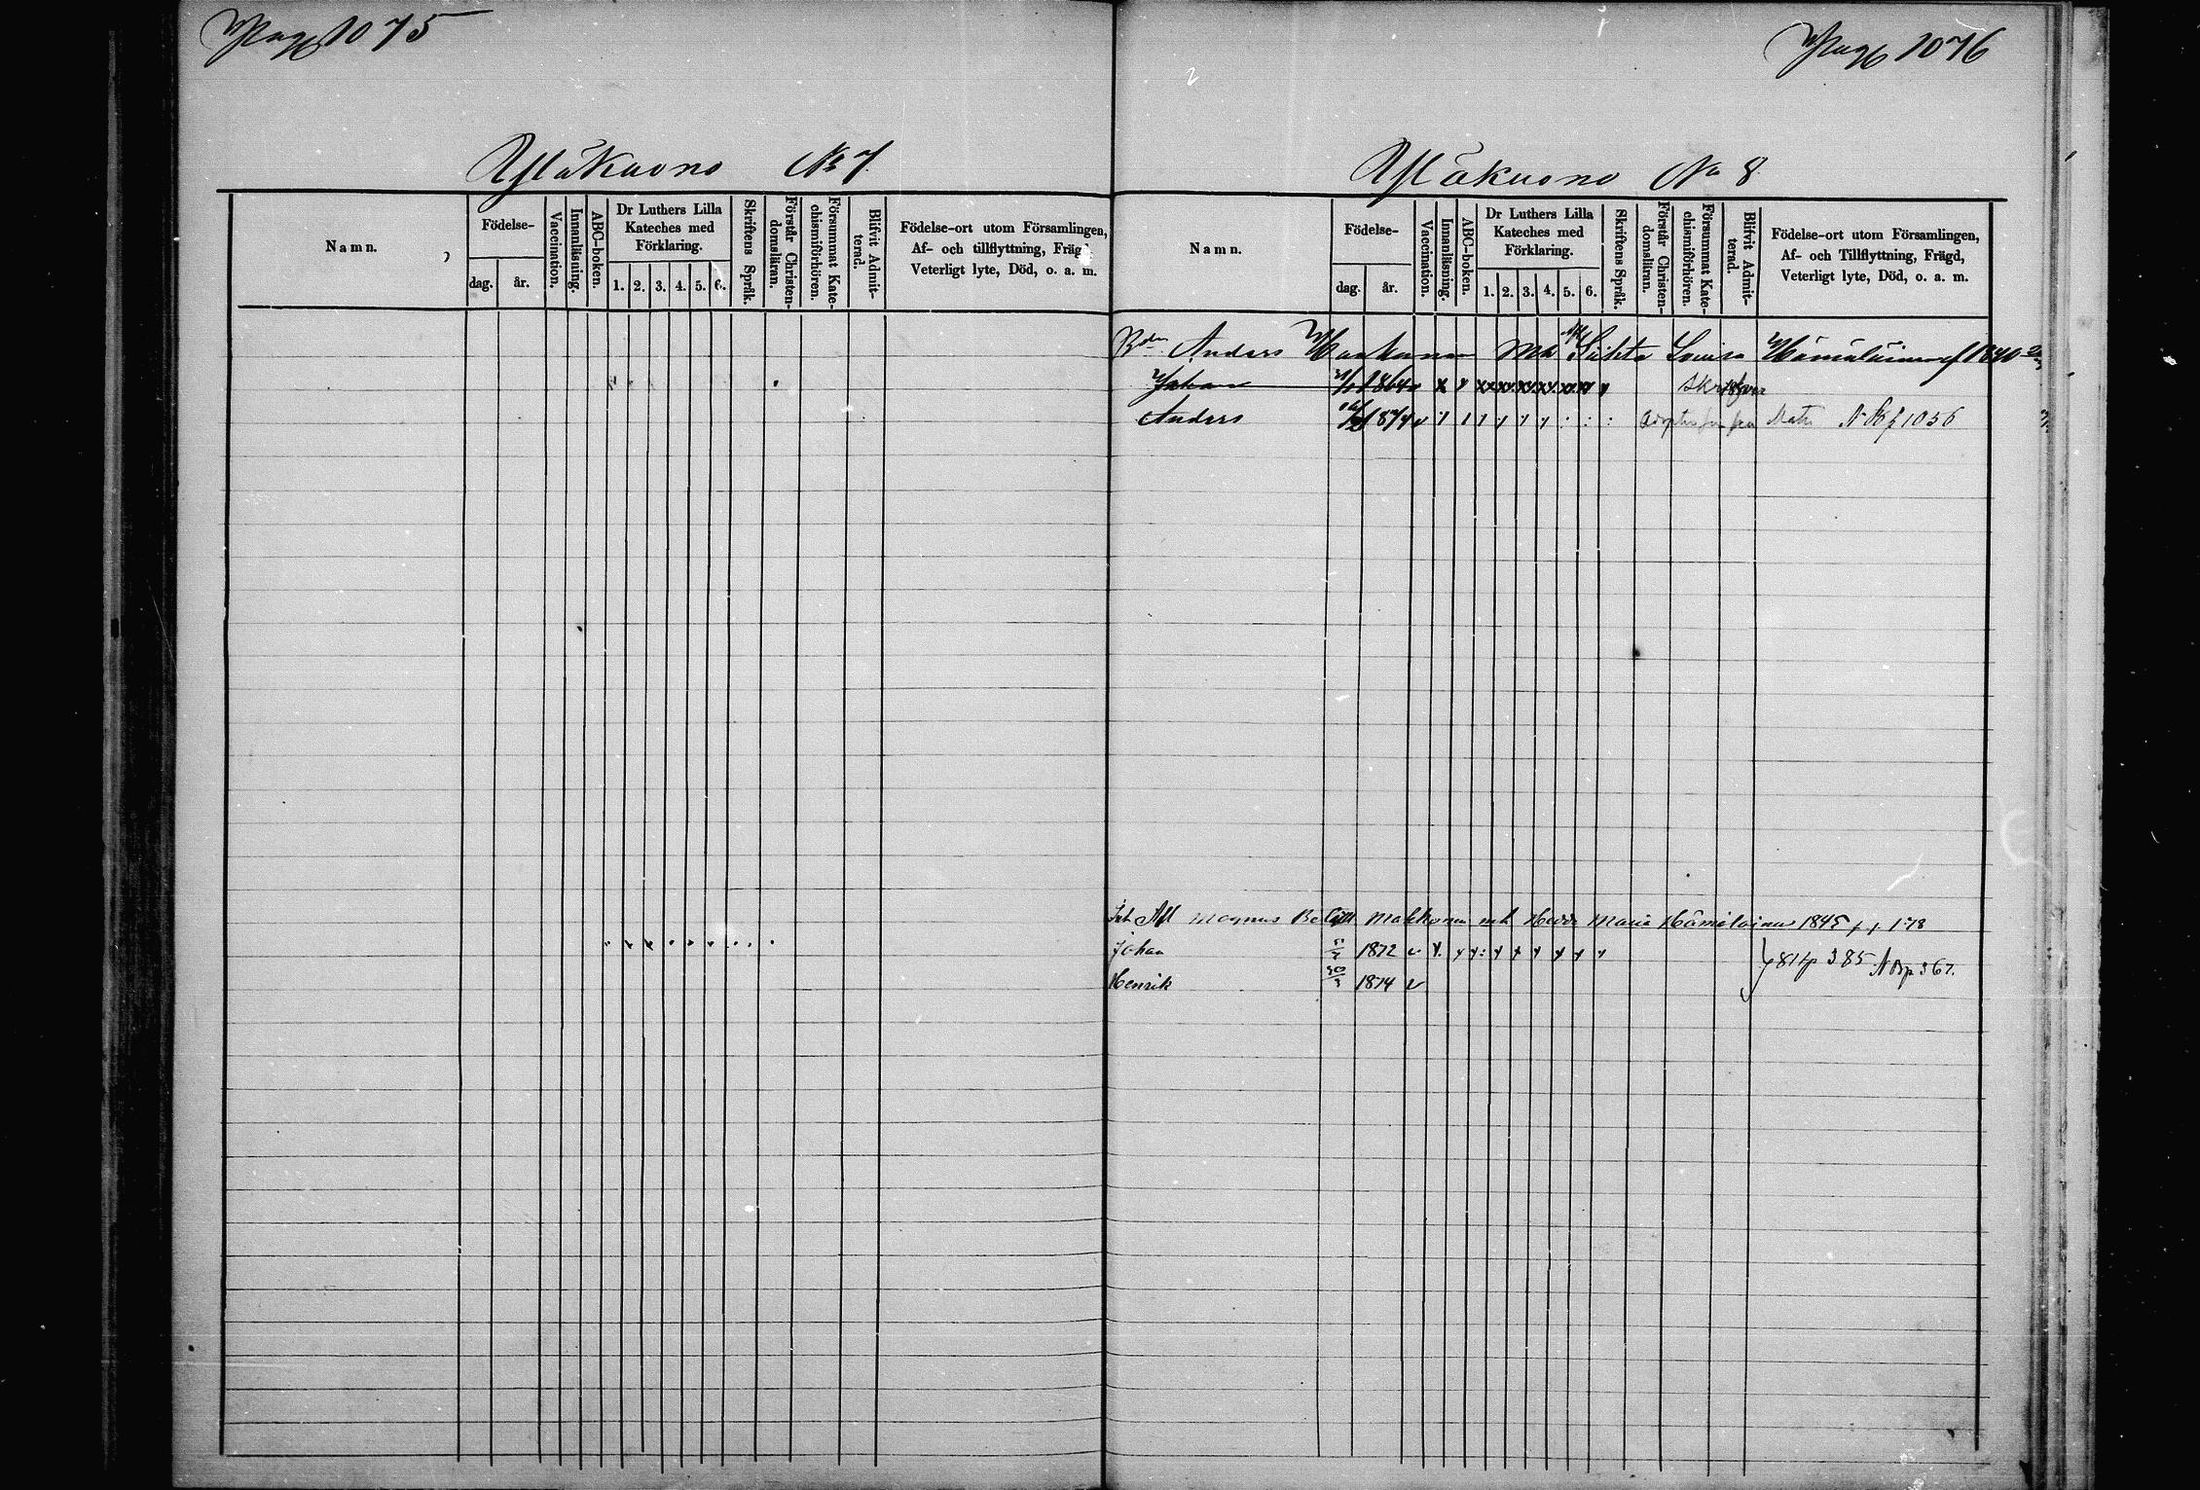 Pag 1075
Yläkuono No 7.
Namn.
Födelse-
dag.
år.
Vaccination.
Innanläsning.
ABC-boken.
Dr Luthers Lilla
Kateches med
Förklaring.
1. 2. 3. 4. 5. 6.
Skriftens Språk.
Förstår Christen-
domsläran.
Försummat Kate-
chismiförhören.
Blifvit Admit-
terad.
Födelse-ort utom Församlingen,
Af- och tillflyttning, Frägd,
Veterligt lyte, Död, o. a. m.
Pag 1076
Yläkuono No 8
Namn.
Födelse-
dag.
år.
Vaccination.
Innanläsning.
ABC-boken.
Dr Luthers Lilla
Kateches med
Förklaring.
1. 2. 3. 4. 5. 6.
Skriftens Språk.
Förstår Christen-
domsläran.
Försummat Kate-
chismiförhören.
Blifvit Admit-
terad.
Födelse-ort utom Församlingen,
Af- och Tillflyttning, Frägd,
Veterligt lyte, Död, o. a. m.
Anders Makkonen Lovisa Hämäläinen f 1840
Johan 1864
Anders 1874 N Bf 1056
Magnus Makkonen Maria Hämäläinen 1845
Johan 1872 385 N Bp 367.
Henrik 30/3 1874